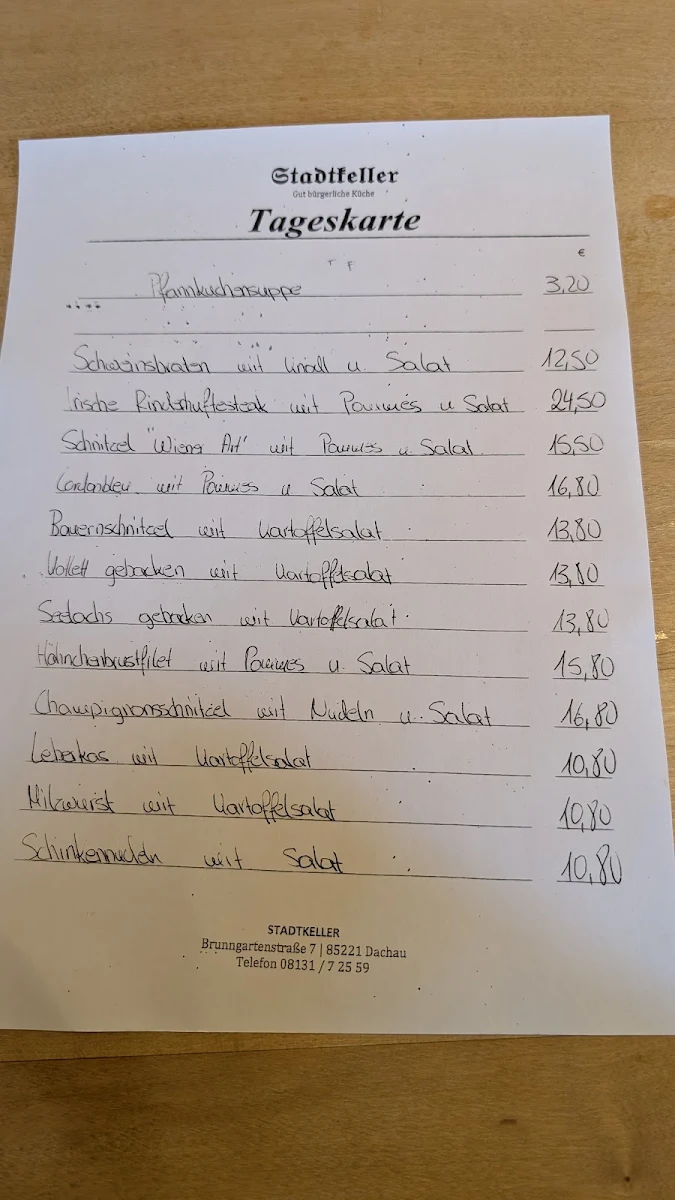 Stadtkeller
Gut bürgerliche Küche
Tageskarte
€
Pfannkuchensuppe 3,20
Schweinsbraten mit Knödl u. Salat 12,50
Irische Rinderhuftesteak mit Pommes u Salat 24,50
Schnitzel "Wiener Art" mit Pommes u. Salat 15,50
Cordonbleu mit Pommes u Salat 16,80
Bauernschnitzel mit Kartoffelsalat 13,80
gebacken mit Kartoffelsalat 13,80
Seelachs gebacken mit Kartoffelsalat 13,80
Hähnchenbrustfilet mit Pommes u. Salat 15,80
Champignonsschnitzel mit Nudeln u. Salat 16,80
Leberkas mit Kartoffelsalat 10,80
Milzwurst mit Kartoffelsalat 10,80
Schinkennudeln mit Salat 10,80
STADTKELLER
Brunngartenstraße 7 | 85221 Dachau
Telefon 08131 / 7 25 59